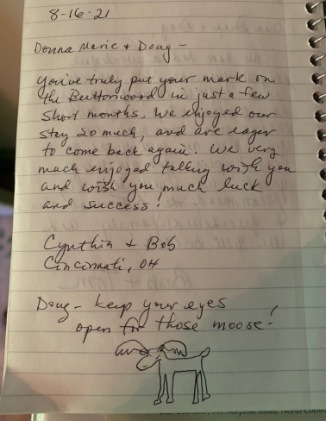 8-16-21
Donna Marie + Doug -
You've truly put your mark on
the Buttonwood in just a few
short months. We enjoyed our
stay so much, and are eager
to come back again. We very
much enjoyed talking with you
and wish you much luck
and success!
Cynthia & Bob
Cincinnati, OH
Doug - keep your eyes
open for those moose!